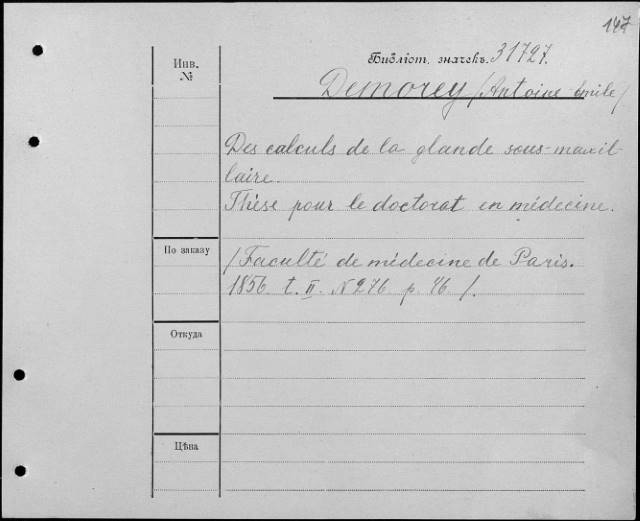 147
Инв. №
Библіот. значекъ. 31727.
Demorey /Antoine Émile/
Des calculs de la glande sous-maxil-
laire.
Thèse pour le doctorat en médecine.
По заказу
/Faculté de médecine de Paris.
1856. t. II. N 276 p. 46 /.
Откуда
Цѣна